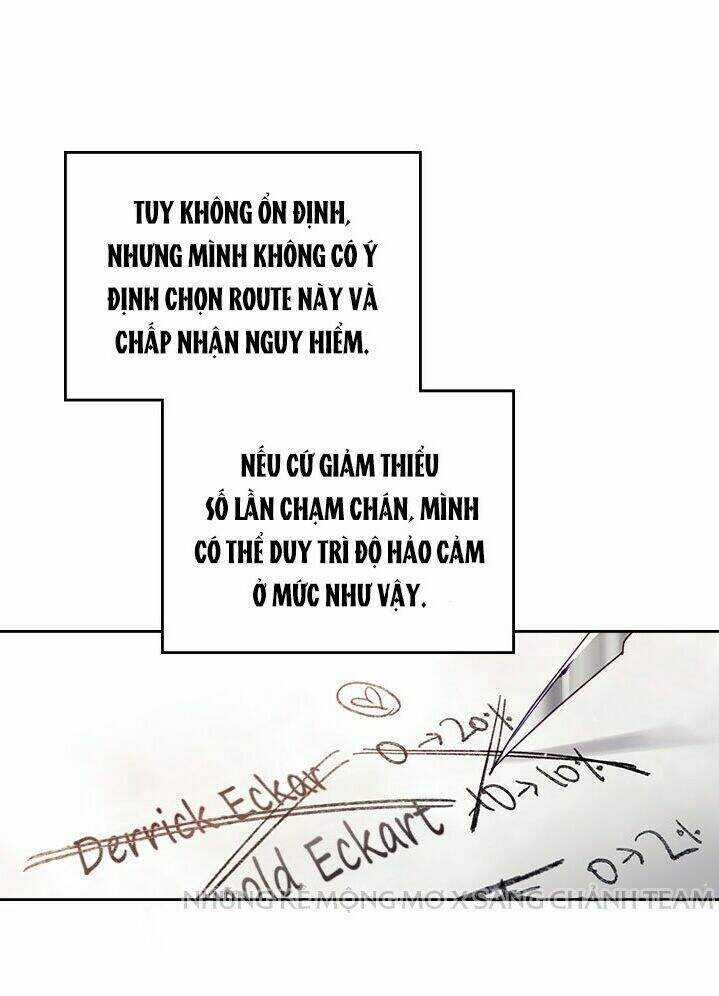 TUY KHÔNG ỔN ĐỊNH,
NHƯNG MÌNH KHÔNG CÓ Ý
ĐỊNH CHỌN ROUTE NÀY VÀ
CHẤP NHẬN NGUY HIỂM.
NẾU CỨ GIẢM THIỂU
SỐ LẦN CHẠM CHÁN, MÌNH
CÓ THỂ DUY TRÌ ĐỘ HẢO CẢM
Ở MỨC NHƯ VẬY.
Derrick Eckar 0→20%
old Eckart 10→10%
0→2%
NHỮNG KẺ MỘNG MƠ X SANG CHẢNH TEAM